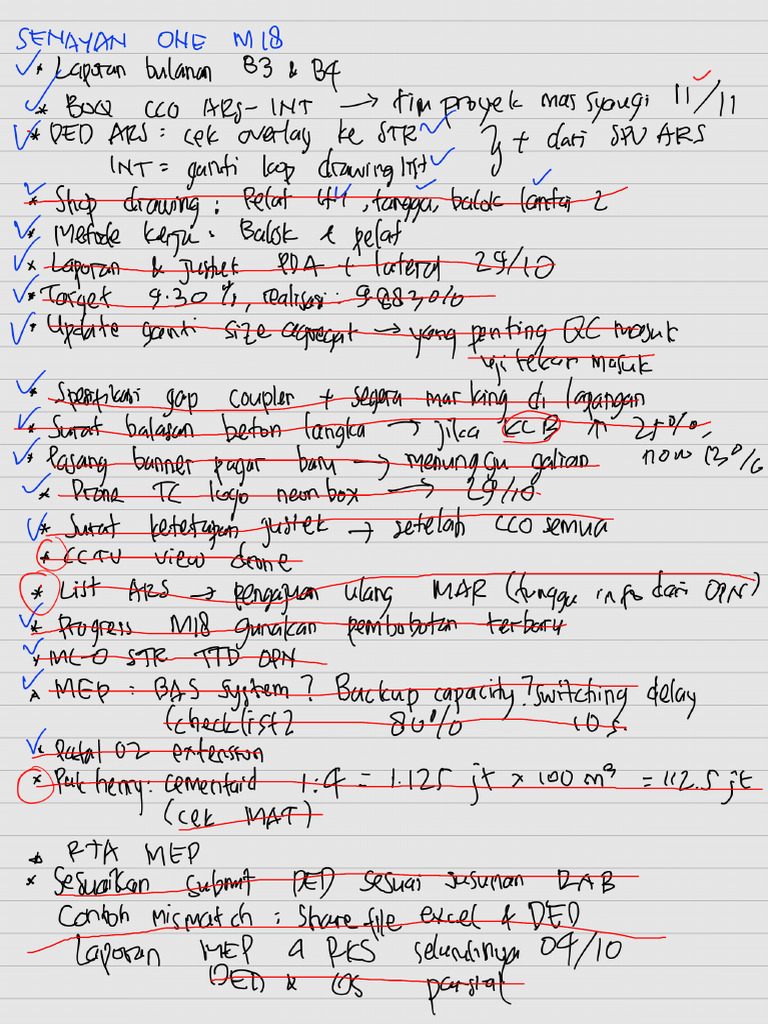 SENAYAN ONE M18
* Laporan bulanan B3 & B4
* BOQ CCO ARS-INT → tim proyek mas syauqi 11/11
* DED ARS : cek overlay ke STR } + dari SPV ARS
INT = ganti kop drawing list
* Shop drawing : Pelat, tangga, balok lantai 2
* Metode kerja : Balok & pelat
* Laporan & justek PDA + lateral 29/10
* Target 9.30%, realisasi : 9.883%
* Update ganti size aggregat → yang penting QC masuk
uji tekan masuk
* Spesifikasi gap coupler + segera marking di lapangan
* Surat balasan beton langka → jika KCB 25%,
now 13%
* Pasang banner pagar baru → menunggu galian
* Drone TC logo neon box → 29/10
* Surat ketetapan justek → setelah CCO semua
* CCTV view drone
* List ARS → pengajuan ulang MAR (tunggu info dari OPN)
* Progress M18 gunakan pembobotan terbaru
* MC-0 STR TTD OPN
* MEP : BAS System? Backup capacity? switching delay
(checklist) 80% 10s
* Padal 02 extension
* Pak henry : cementaid 1:4 = 1.125 jt × 100 m³ = 112.5 jt
(cek MAT)
* RTA MEP
* Sesuaikan submit DED sesuai susunan RAB
Contoh mismatch : share file excel & DED
Laporan MEP a RKS selundinya 04/10
DED & OS parsial